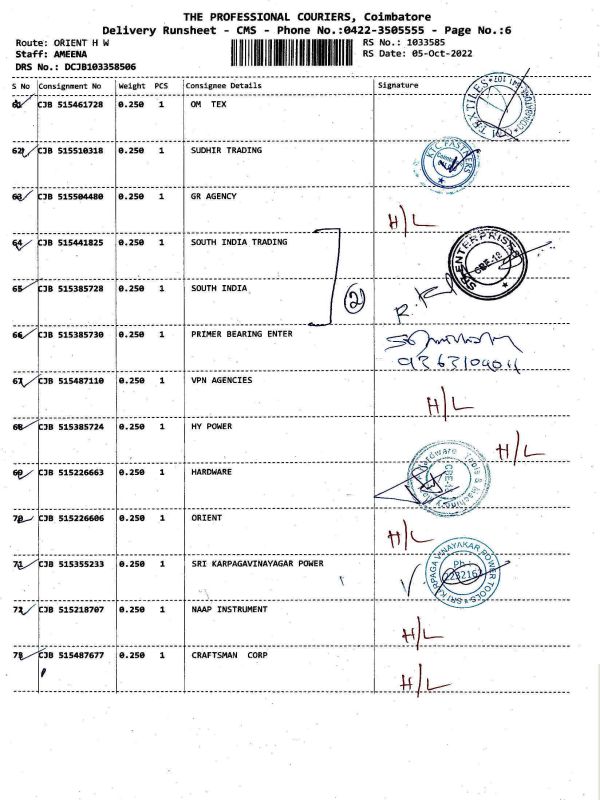 THE PROFESSIONAL COURIERS, Coimbatore
Delivery Runsheet - CMS - Phone No.:0422-3505555 - Page No.:6
Route: ORIENT H W RS No.: 1033585
Staff: AMEENA RS Date: 05-Oct-2022
DRS No.: DCJB103358506
S No Consignment No Weight PCS Consignee Details Signature
61 CJB 515461728 0.250 1 OM TEX
TEXTILES
62 CJB 515510318 0.250 1 SUDHIR TRADING
KTC FASTNERS
63 CJB 515504480 0.250 1 GR AGENCY
H/L
64 CJB 515441825 0.250 1 SOUTH INDIA TRADING
SR ENTERPRISES
CBE-18
65 CJB 515385728 0.250 1 SOUTH INDIA
2
66 CJB 515385730 0.250 1 PRIMER BEARING ENTER
67 CJB 515487110 0.250 1 VPN AGENCIES
H/L
68 CJB 515385724 0.250 1 HY POWER
H/L
69 CJB 515226663 0.250 1 HARDWARE
Hardware Tools & Machinery
70 CJB 515226606 0.250 1 ORIENT
H/L
71 CJB 515355233 0.250 1 SRI KARPAGAVINAYAGAR POWER
SRI KARPAGA VINAYAKAR POWER TOOLS
Ph :
72 CJB 515218707 0.250 1 NAAP INSTRUMENT
H/L
73 CJB 515487677 0.250 1 CRAFTSMAN CORP
H/L